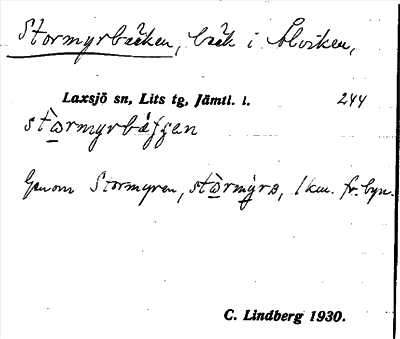 Stormyrbäcken, bäck i Alviken,
Laxsjö sn, Lits tg, Jämtl. l. 244
Genom Stormyren, 1 km. fr. byn.
C. Lindberg 1930.